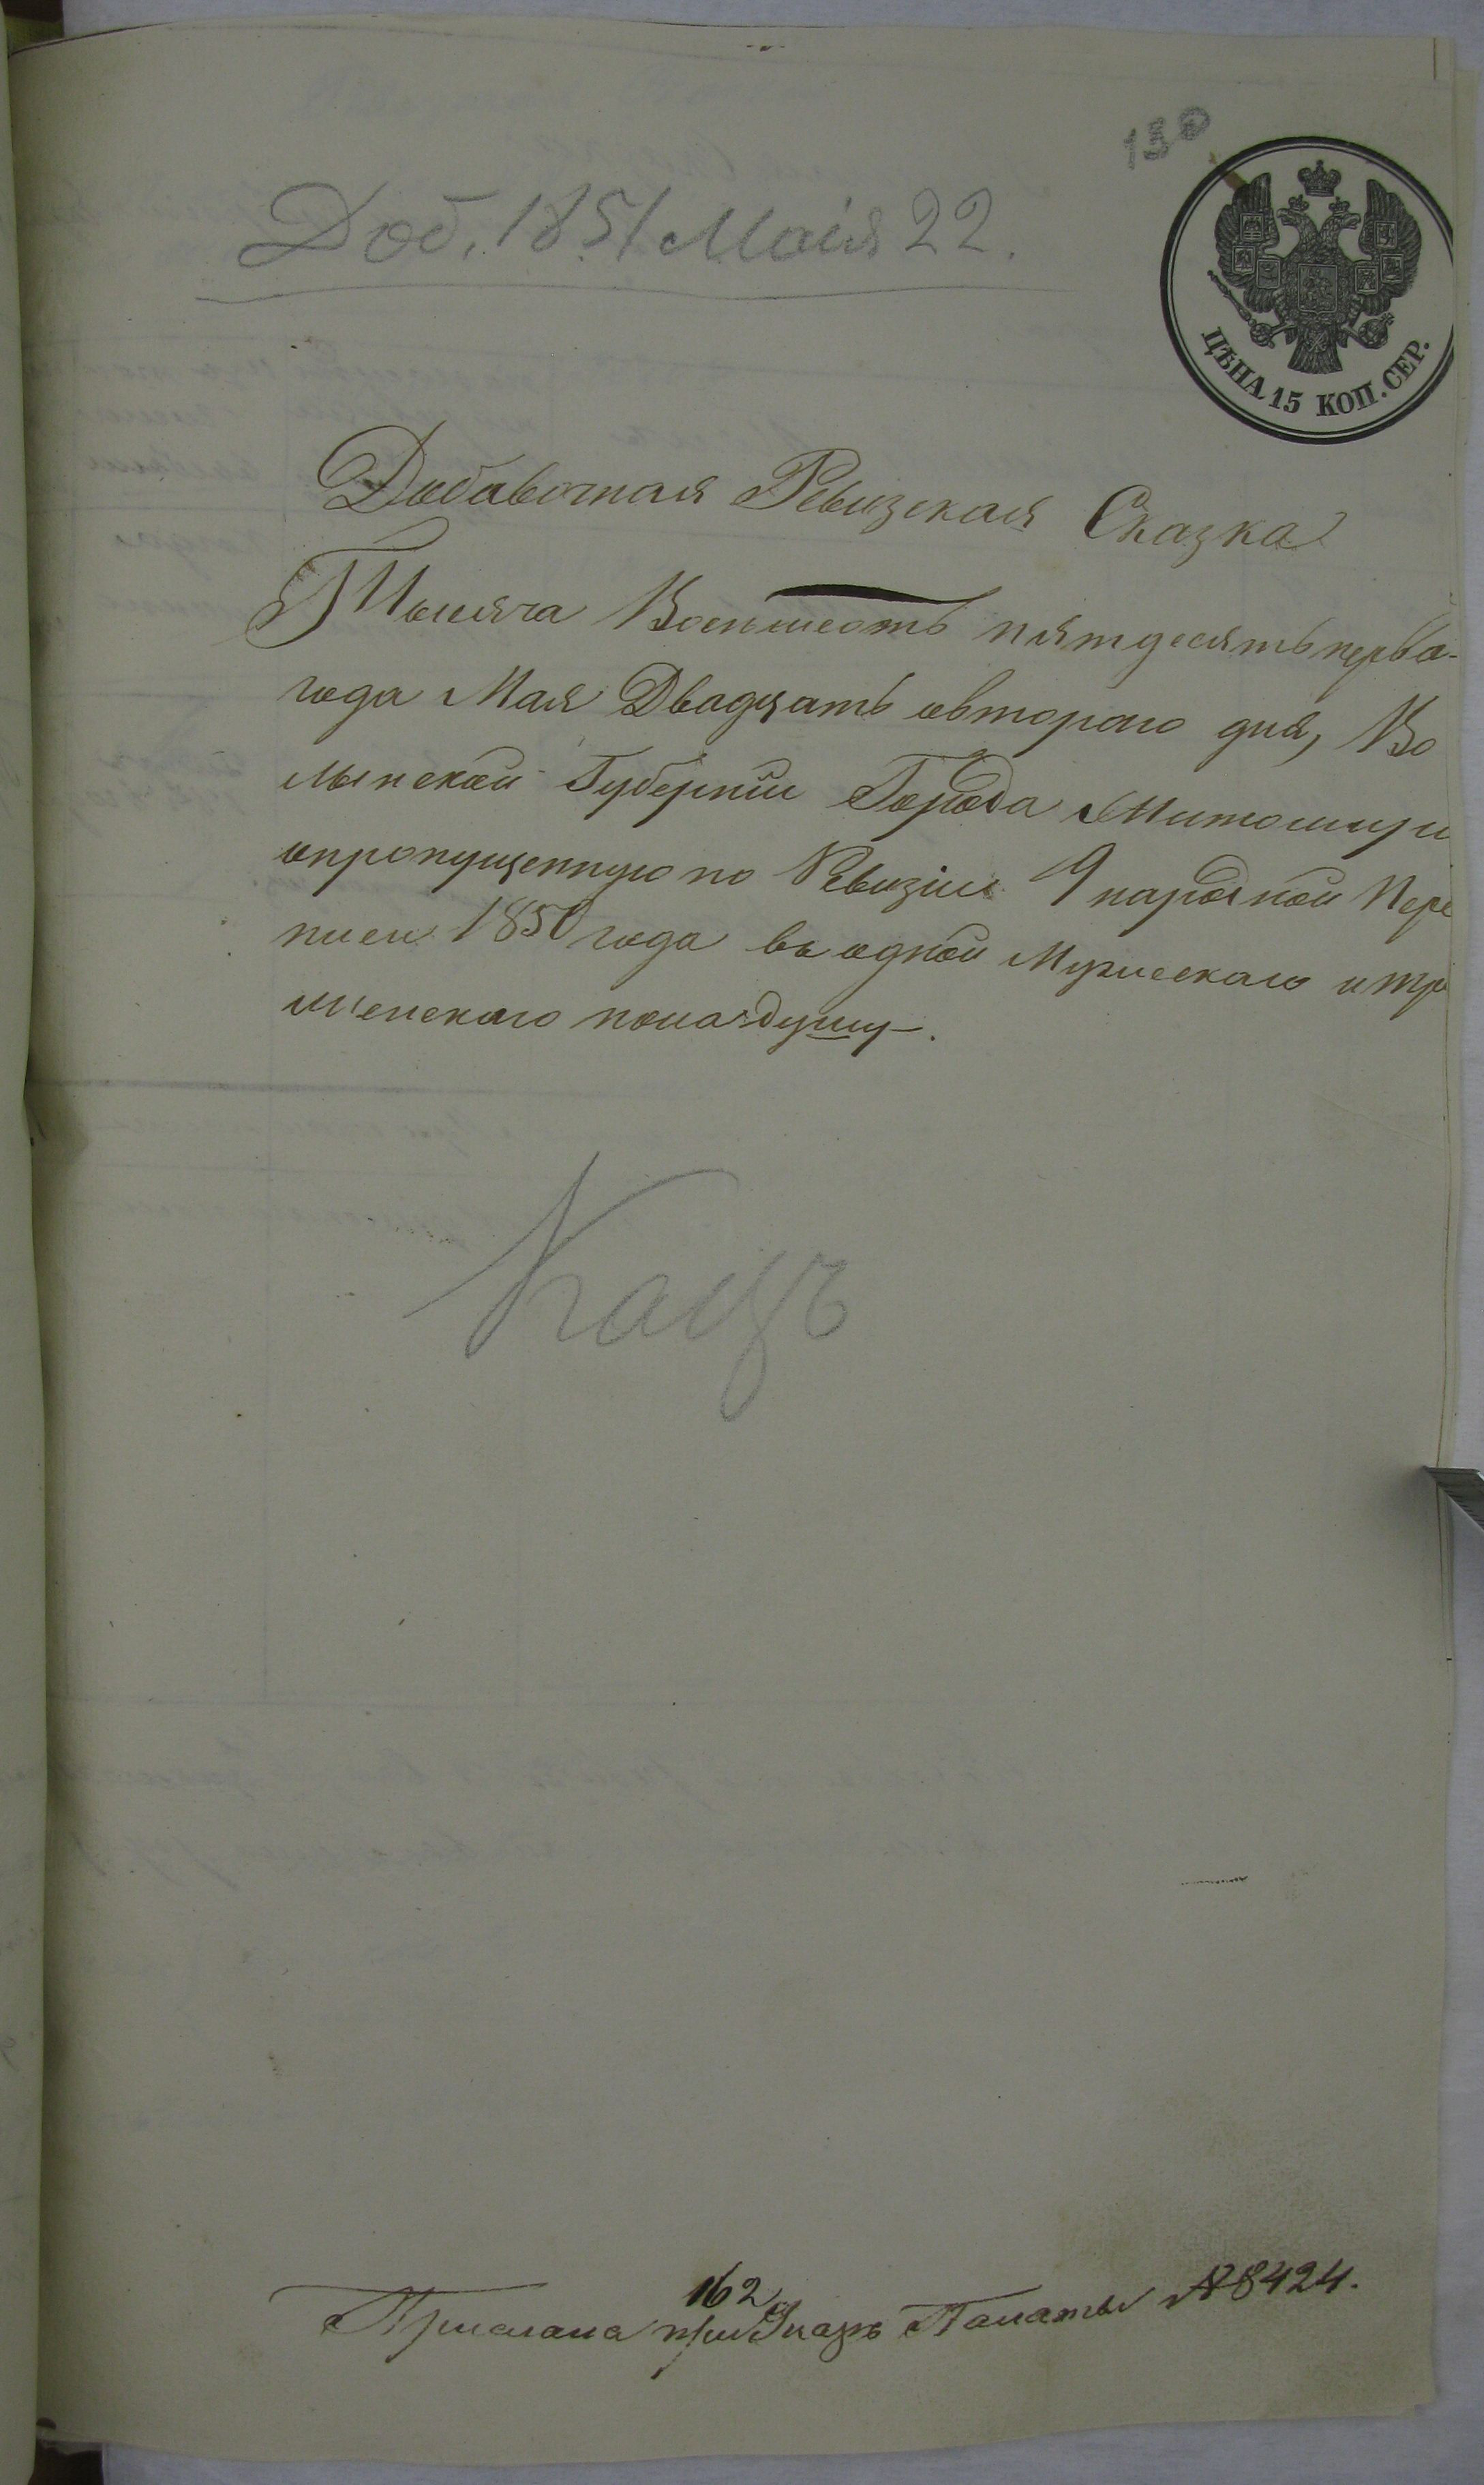 130
Доб. 1851 Маія 22.
ЦѢНА 15 КОП. СЕР.
Добавочная Ревизская Сказка
Тысяча Восемьсотъ пятдесятъ перва-
года Мая Двадцать втораго дня, Во
лынской Губерніи Города Житомира
опропущенную по Ревизіи 9 народной Пере
писи 1850 года въ одной Мужескаго и
женскаго пола душу.
Кацъ
162
Прислана при Указѣ Палаты № 8424.